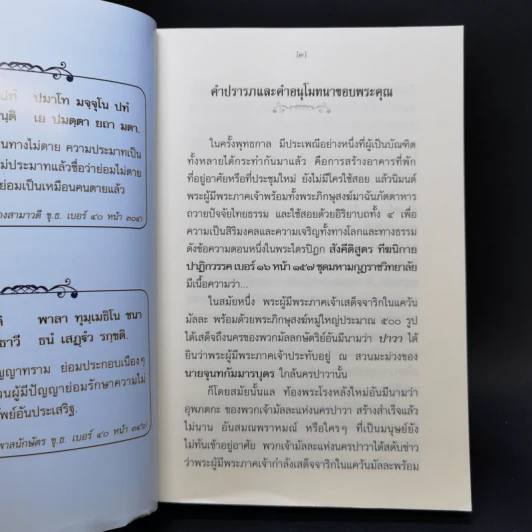 ปมาโท มจฺจุโน ปทํ
เย ปมตฺตา ยถา มตา.
นทางไม่ตาย ความประมาทเป็น
ม่ประมาทแล้วชื่อว่าย่อมไม่ตาย
ย่อมเป็นเหมือนคนตายแล้ว
ขุ.ธ. เบอร์ ๔๐ หน้า ๓๐๔)
พาลา ทุมฺเมธิโน ชนา
ธนํ เสฏฺฐํว รกฺขติ.
ญญาทราม ย่อมประกอบเนืองๆ
วนผู้มีปัญญาย่อมรักษาความไม่
พย์อันประเสริฐ.
พาลนักษัตร ขุ.ธ. เบอร์ ๔๐ หน้า
[๓]
คำปรารภและคำอนุโมทนาขอบพระคุณ
ในครั้งพุทธกาล มีประเพณีอย่างหนึ่งที่ผู้เป็นบัณฑิต
ทั้งหลายได้กระทำกันมาแล้ว คือการสร้างอาคารที่พัก
ที่อยู่อาศัยหรือที่ประชุมใหม่ ยังไม่มีใครใช้สอย แล้วนิมนต์
พระผู้มีพระภาคเจ้าพร้อมทั้งพระภิกษุสงฆ์มาฉันภัตตาหาร
ถวายปัจจัยไทยธรรม และใช้สอยด้วยอิริยาบถทั้ง ๔ เพื่อ
ความเป็นสิริมงคลและความเจริญทั้งทางโลกและทางธรรม
ดังข้อความตอนหนึ่งในพระไตรปิฎก สังคีติสูตร ทีฆนิกาย
ปาฏิกวรรค เบอร์ ๑๖ หน้า ๑๕๗ ชุดมหามกุฏราชวิทยาลัย
มีเนื้อความว่า...
ในสมัยหนึ่ง พระผู้มีพระภาคเจ้าเสด็จจาริกในแคว้น
มัลละ พร้อมด้วยพระภิกษุสงฆ์หมู่ใหญ่ประมาณ ๕๐๐ รูป
ได้เสด็จถึงนครของพวกมัลลกษัตริย์อันมีนามว่า ปาวา ได้
ยินว่าพระผู้มีพระภาคเจ้าประทับอยู่ ณ สวนมะม่วงของ
นายจุนทกัมมารบุตร ใกล้นครปาวานั้น
ก็โดยสมัยนั้นแล ท้องพระโรงหลังใหม่อันมีนามว่า
อุพภตกะ ของพวกเจ้ามัลละแห่งนครปาวา สร้างสำเร็จแล้ว
ไม่นาน อันสมณพราหมณ์ หรือใครๆ ที่เป็นมนุษย์ยัง
ไม่ทันเข้าอยู่อาศัย พวกเจ้ามัลละแห่งนครปาวาได้สดับข่าว
ว่าพระผู้มีพระภาคเจ้ากำลังเสด็จจาริกในแคว้นมัลละพร้อม